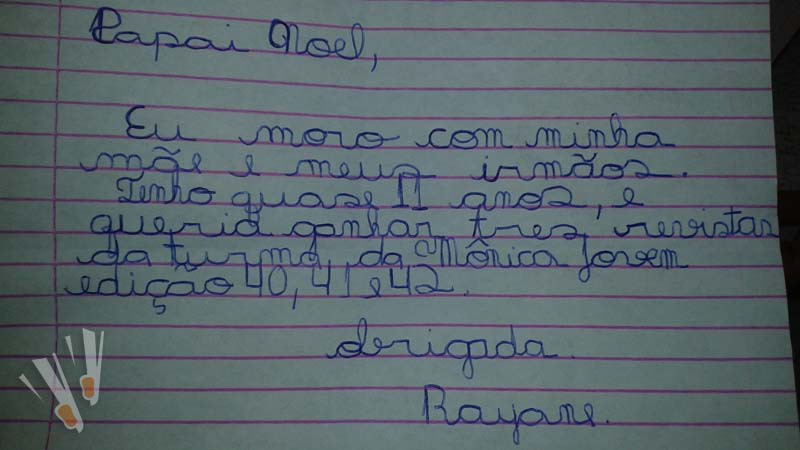 Papai Noel,
Eu moro com minha
mãe e meus irmãos.
Tenho quase 11 anos, e
queria ganhar tres revistas
da turma da Mônica Jovem
edição 40, 41 e 42.
obrigada.
Rayane.